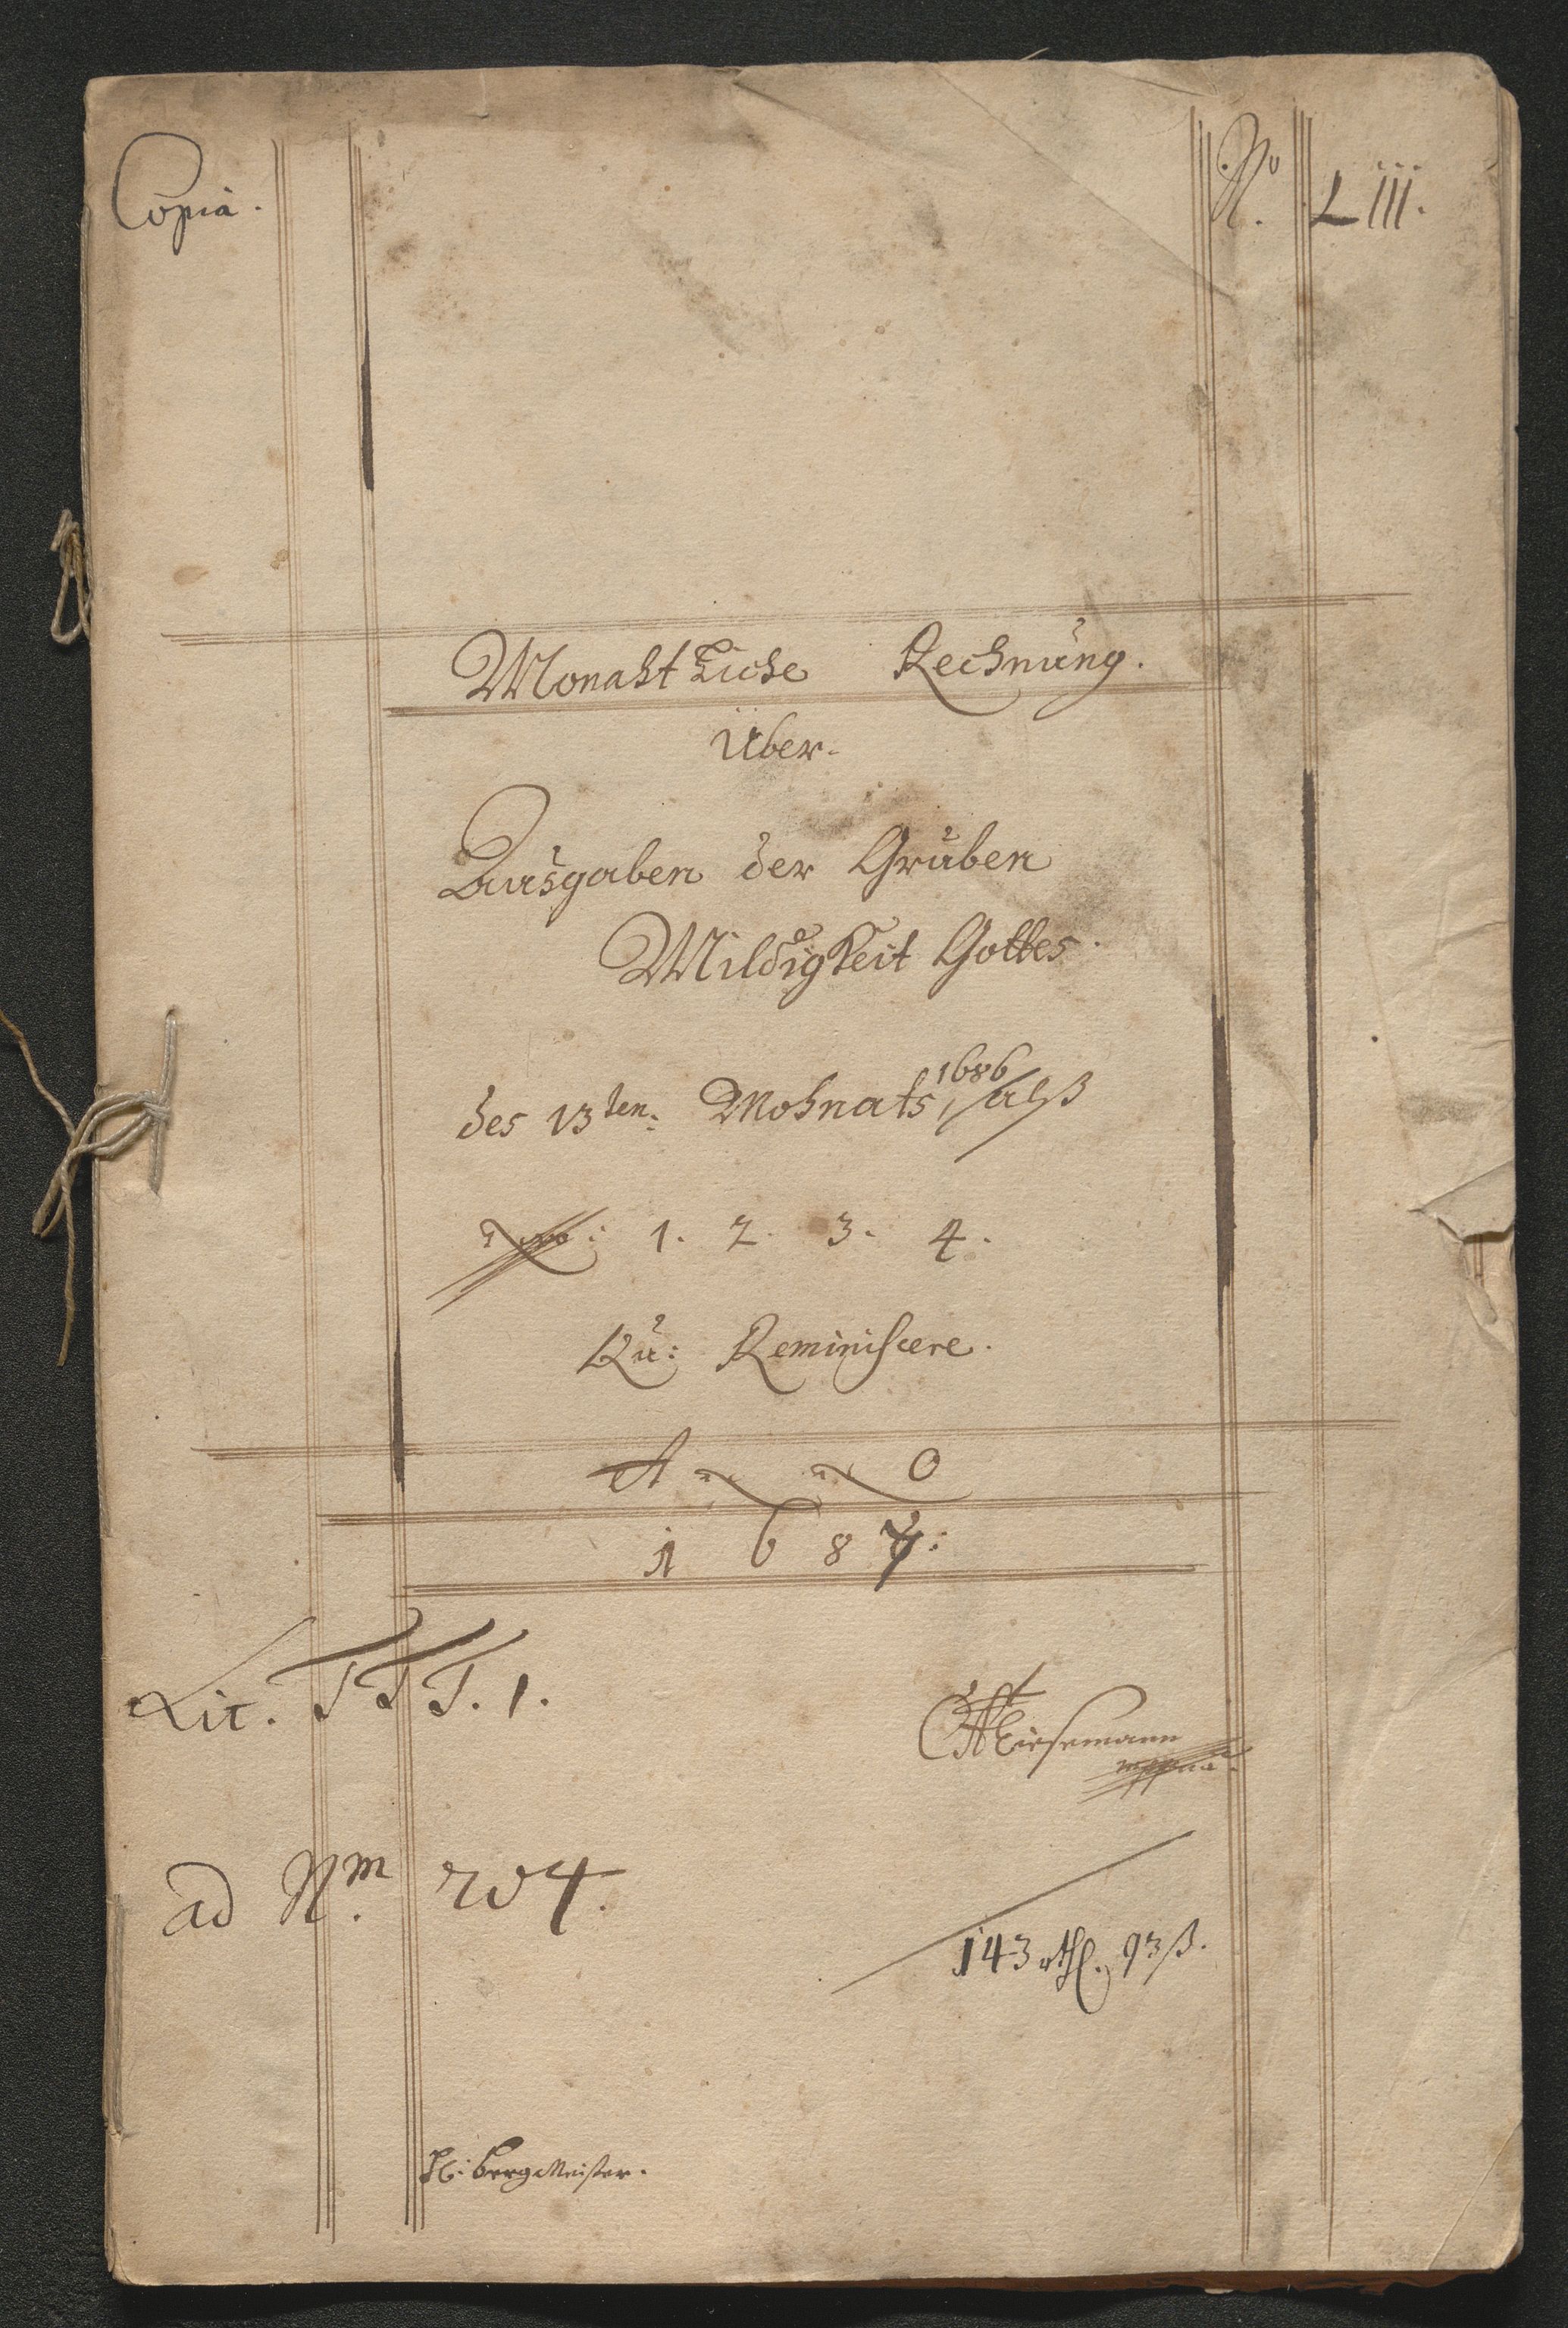 Copia.
No. LIII.
Monahtliche Rechnung.
Über.
Ausgaben der Gruben
Mildigkeit Gottes.
des 13ten: Mohnats, 1686 / alß
No: 1. 2. 3. 4.
Qu: Reminiscere.
A n n o
1 6 8 7:
Lit. TTT. 1.
mppria.
ad Nm. 204.
143 rthl. 93 ß.
H: bergMeister.